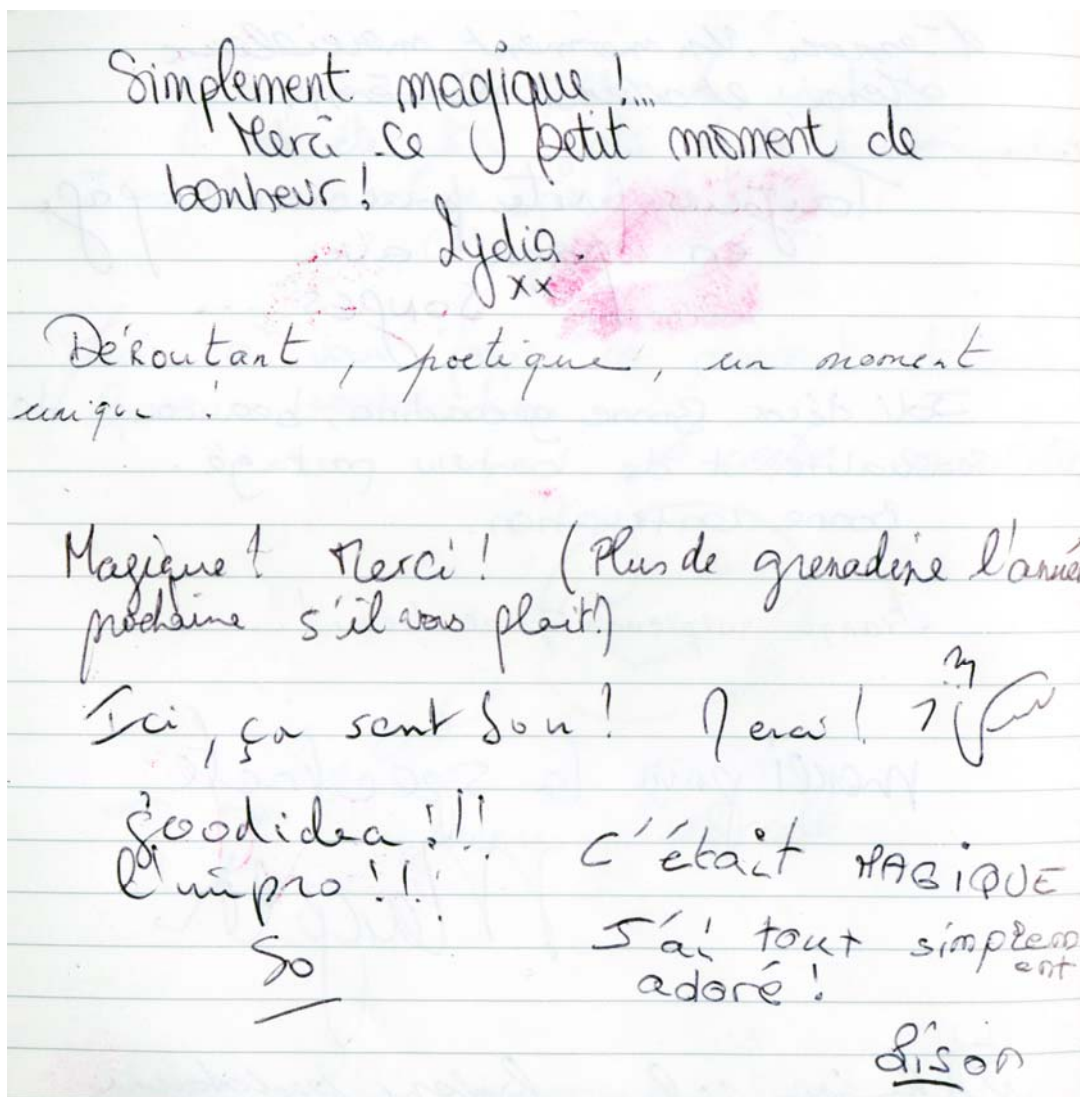 Simplement magique !...
Merci ce petit moment de
bonheur !
Lydia.
xx
Déroutant, poetique, un moment
unique !
Magique ! Merci ! (Plus de grenadine l'année
prochaine s'il vous plait !)
Ici, ça sent bon ! Merci !
Good idea !!!
L'impro !!!
So
C'était MAGIQUE
J'ai tout simplem
ent
adoré !
Lison